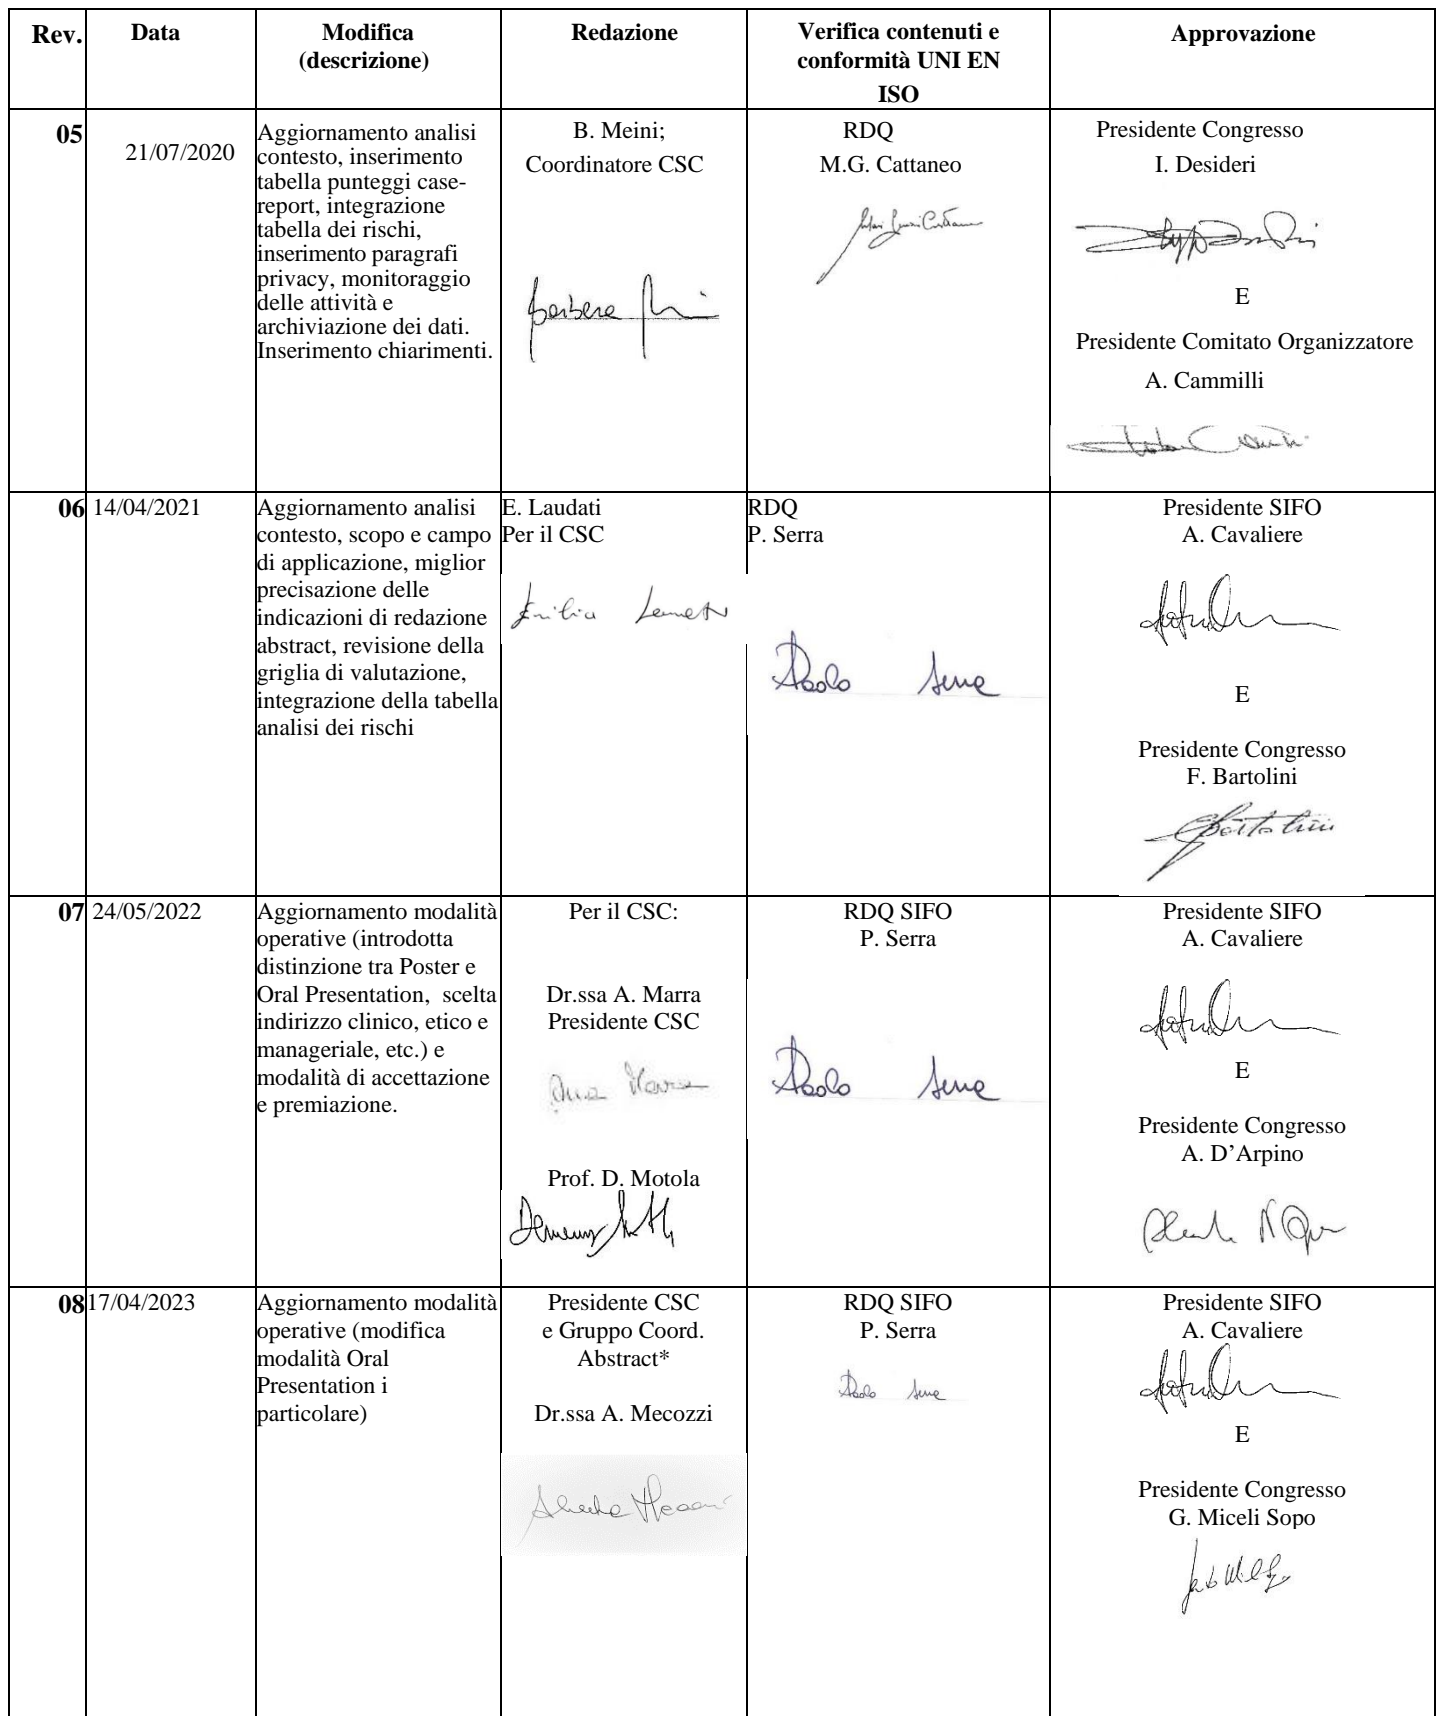 Rev.
Data
Modifica
(descrizione)
Redazione
Verifica contenuti e
conformità UNI EN
ISO
Approvazione
05
21/07/2020
Aggiornamento analisi
contesto, inserimento
tabella punteggi case-
report, integrazione
tabella dei rischi,
inserimento paragrafi
privacy, monitoraggio
delle attività e
archiviazione dei dati.
Inserimento chiarimenti.
B. Meini;
Coordinatore CSC
RDQ
M.G. Cattaneo
Presidente Congresso
I. Desideri
E
Presidente Comitato Organizzatore
A. Cammilli
06
14/04/2021
Aggiornamento analisi
contesto, scopo e campo
di applicazione, miglior
precisazione delle
indicazioni di redazione
abstract, revisione della
griglia di valutazione,
integrazione della tabella
analisi dei rischi
E. Laudati
Per il CSC
RDQ
P. Serra
Paolo Serra
Presidente SIFO
A. Cavaliere
E
Presidente Congresso
F. Bartolini
07
24/05/2022
Aggiornamento modalità
operative (introdotta
distinzione tra Poster e
Oral Presentation, scelta
indirizzo clinico, etico e
manageriale, etc.) e
modalità di accettazione
e premiazione.
Per il CSC:
Dr.ssa A. Marra
Presidente CSC
Prof. D. Motola
RDQ SIFO
P. Serra
Paolo Serra
Presidente SIFO
A. Cavaliere
E
Presidente Congresso
A. D’Arpino
08
17/04/2023
Aggiornamento modalità
operative (modifica
modalità Oral
Presentation i
particolare)
Presidente CSC
e Gruppo Coord.
Abstract*
Dr.ssa A. Mecozzi
RDQ SIFO
P. Serra
Paolo Serra
Presidente SIFO
A. Cavaliere
E
Presidente Congresso
G. Miceli Sopo